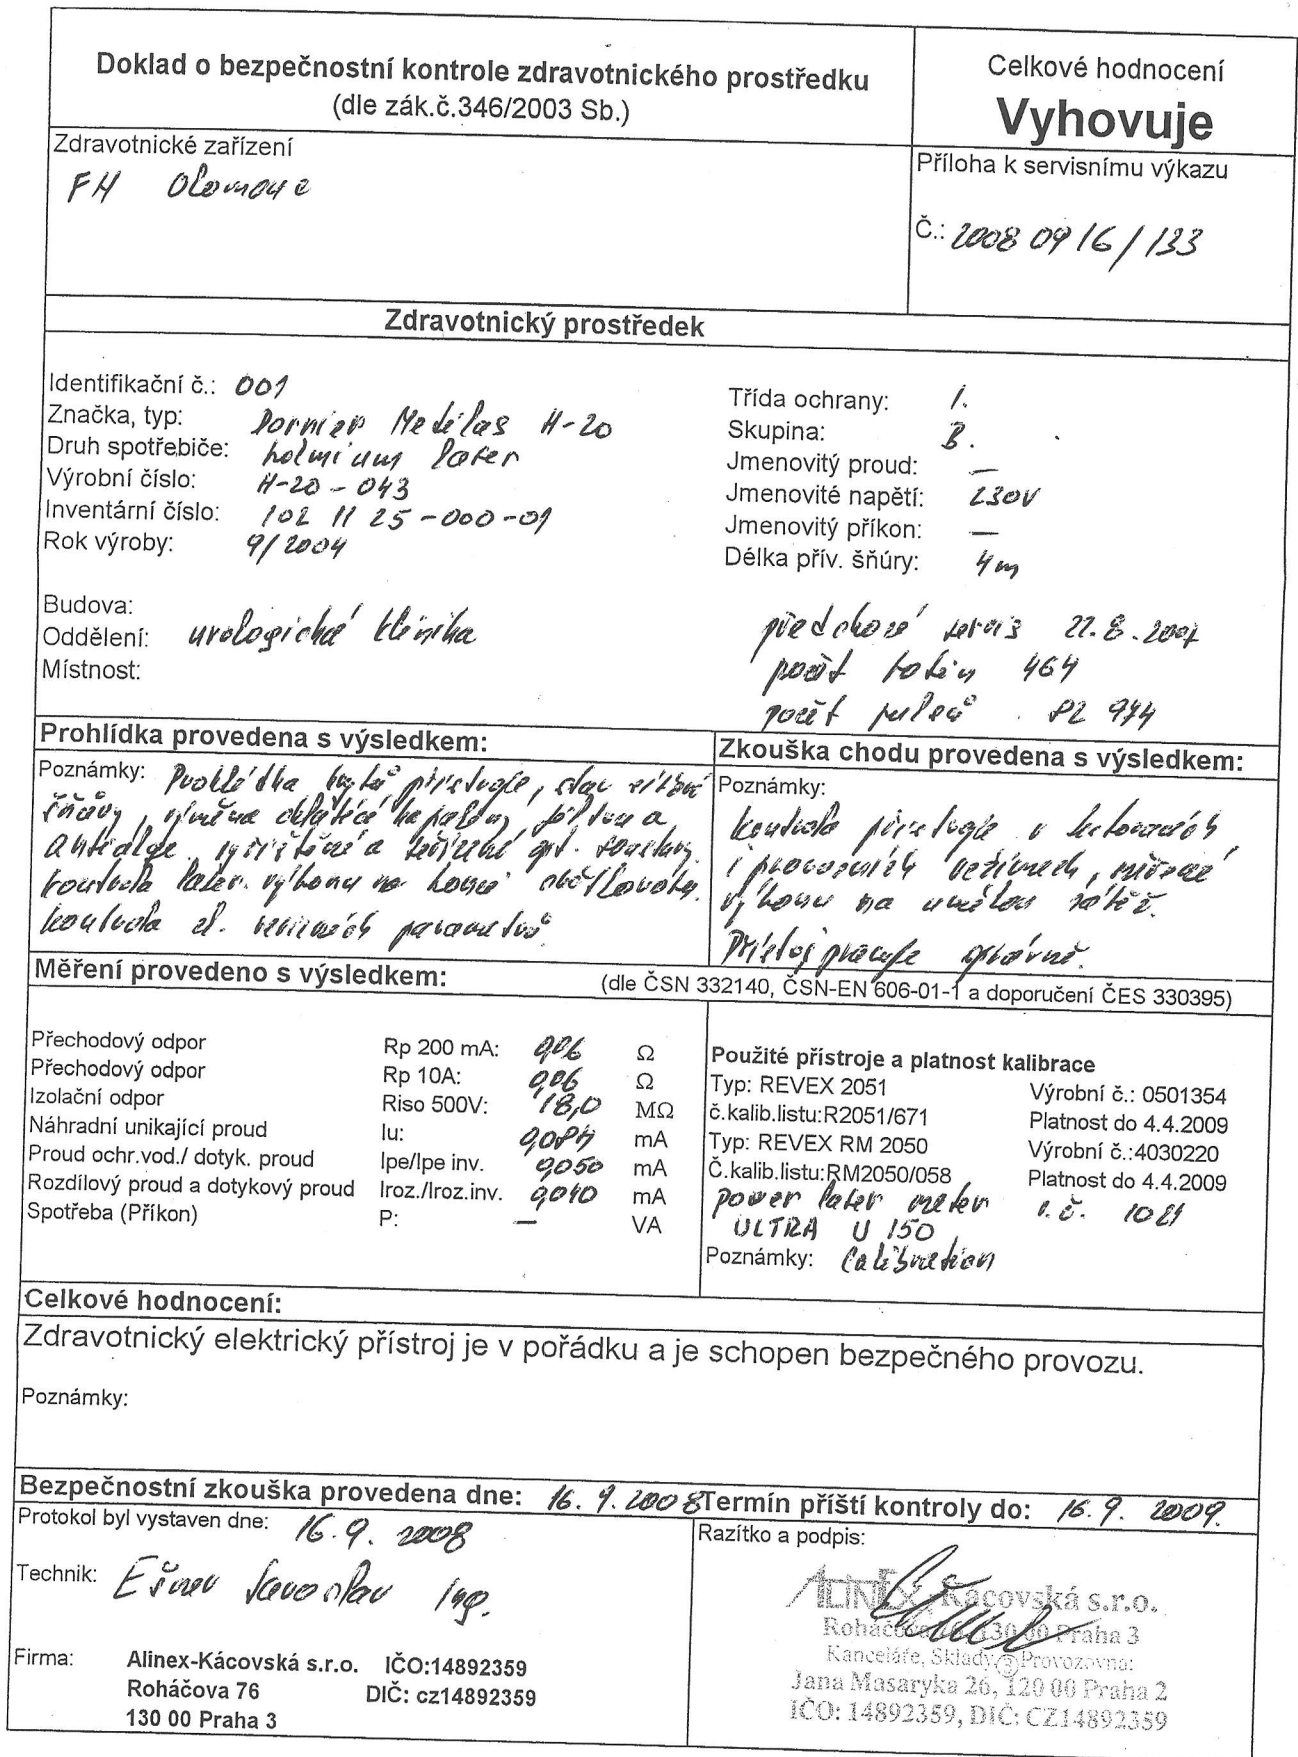 Doklad o bezpečnostní kontrole zdravotnického prostředku
(dle zák.č.346/2003 Sb.)
Celkové hodnocení
Vyhovuje
Zdravotnické zařízení
FH Olomouc
Příloha k servisnímu výkazu
Č.: 2008 09 16 / 133
Zdravotnický prostředek
Identifikační č.: 001
Značka, typ: Dornier Medilas H-20
Druh spotřebiče: holmium laser
Výrobní číslo: H-20-043
Inventární číslo: 102 11 25-000-01
Rok výroby: 9/2004
Třída ochrany: 1.
Skupina: B.
Jmenovitý proud: —
Jmenovité napětí: 230V
Jmenovitý příkon: —
Délka přív. šňůry: 4m
Budova:
Oddělení: urologická klinika
Místnost:
předchozí servis 22.8.2007
počet hodin 464
počet pulsů 82 974
Prohlídka provedena s výsledkem:
Poznámky: Prohlídka krytů přístroje, stav síťové
šňůry, výměna chladící kapaliny, filtru a
antialge, vyčištění a seřízení opt. soustavy.
kontrola laser. výkonu na konci světlovodu.
kontrola el. revizních parametrů.
Zkouška chodu provedena s výsledkem:
Poznámky:
kontrola přístroje v testovacích
i provozních režimech, měření
výkonu na umělou zátěž.
Přístroj pracuje správně.
Měření provedeno s výsledkem:
(dle ČSN 332140, ČSN-EN 606-01-1 a doporučení ČES 330395)
Přechodový odpor Rp 200 mA: 0,06 Ω
Přechodový odpor Rp 10A: 0,06 Ω
Izolační odpor Riso 500V: 18,0 MΩ
Náhradní unikající proud Iu: 0,084 mA
Proud ochr.vod./ dotyk. proud Ipe/Ipe inv. 0,050 mA
Rozdílový proud a dotykový proud Iroz./Iroz.inv. 0,010 mA
Spotřeba (Příkon) P: — VA
Použité přístroje a platnost kalibrace
Typ: REVEX 2051 Výrobní č.: 0501354
č.kalib.listu:R2051/671 Platnost do 4.4.2009
Typ: REVEX RM 2050 Výrobní č.:4030220
Č.kalib.listu:RM2050/058 Platnost do 4.4.2009
power laser meter v.č. 1021
ULTRA U 150
Poznámky: Calibration
Celkové hodnocení:
Zdravotnický elektrický přístroj je v pořádku a je schopen bezpečného provozu.
Poznámky:
Bezpečnostní zkouška provedena dne: 16. 9. 2008 Termín příští kontroly do: 16. 9. 2009.
Protokol byl vystaven dne: 16. 9. 2008
Razítko a podpis:
Technik: Ing.
Firma: Alinex-Kácovská s.r.o. IČO:14892359
Roháčova 76 DIČ: cz14892359
130 00 Praha 3
ALINEX, Kácovská s.r.o.
Roháčova 76, 130 00 Praha 3
Kanceláře, Sklady, 3 Provozovna:
Jana Masaryka 26, 120 00 Praha 2
IČO: 14892359, DIČ: CZ14892359